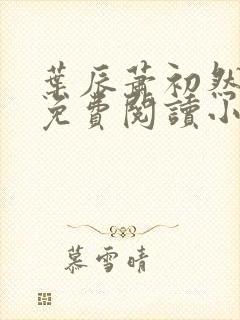 葉辰蕭初然
免費閱讀小
慕雪晴